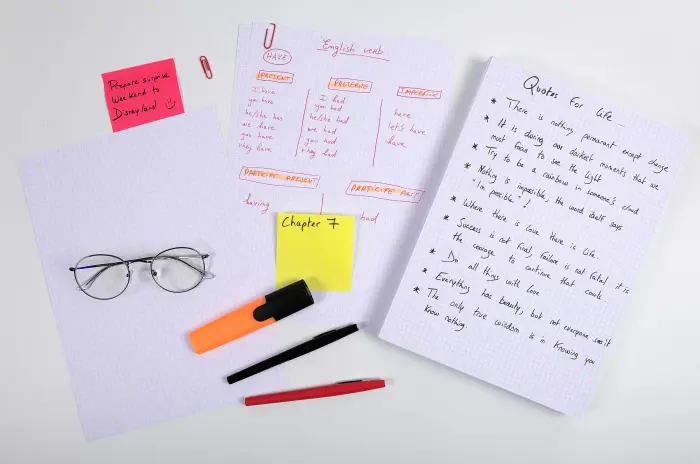 Prepare surprise
Weekend to
Disneyland
English verb
HAVE
PRESENT
I have
you have
he/she has
we have
you have
they have
I had
you had
he/she had
we had
you had
they had
IMPERATIVE
have
let's have
have
PARTICIPE PRESENT
having
PARTICIPE PAST
had
Chapter 7
Quotes For Life _
* There is nothing permanent except change
* It is during our darkest moments that we
must focus to see the light
* Try to be a rainbow in someone's cloud
* Nothing is impossible, the word itself says
"I'm possible"!
* Where there is love there is life
* Success is not final, failure is not fatal: it is
the courage to continue that counts
* Do all things with love
* Everything has beauty, but not everyone sees it
* The only true wisdom is in knowing you
know nothing.